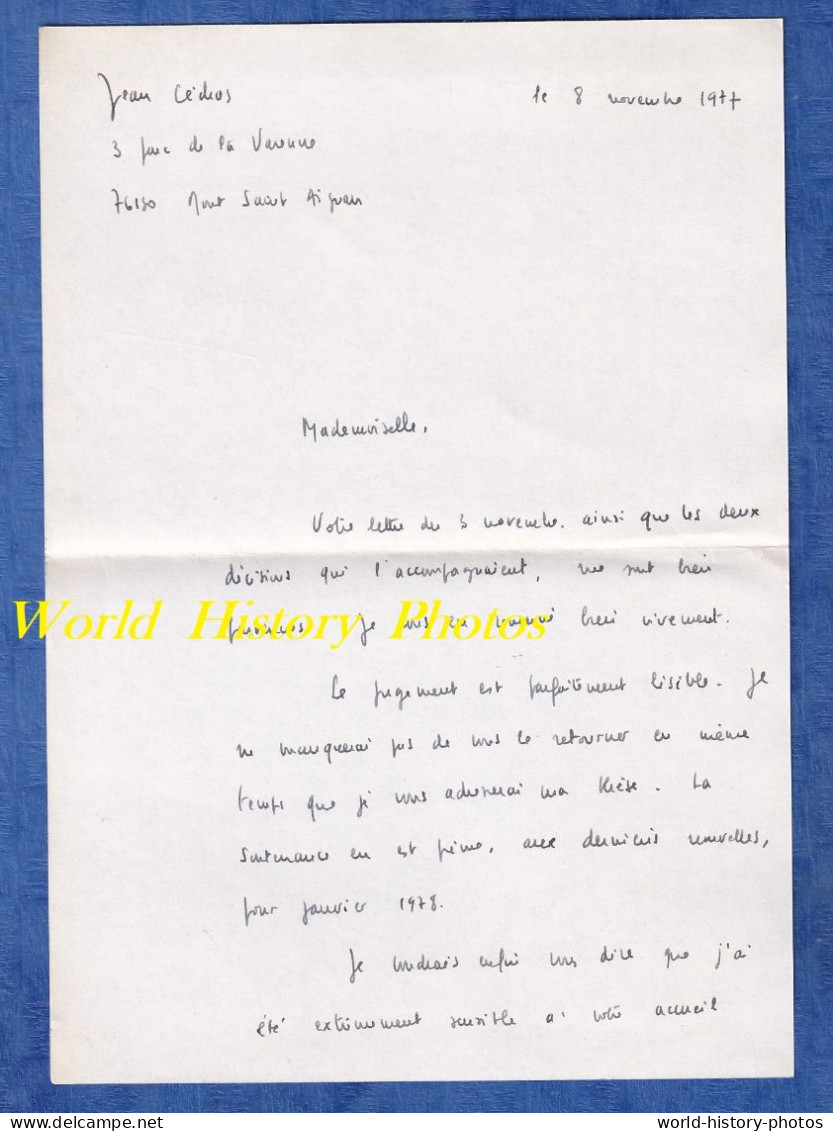 Jean Cédras
le 8 novembre 1977
3 parc de la Varenne
76130 Mont Saint Aignan
Mademoiselle,
Votre lettre du 3 novembre, ainsi que les deux
décisions qui l'accompagnaient, me sont bien
parvenues. Je vous en remercie bien vivement.
World History Photos
Le jugement est parfaitement lisible. Je
ne manquerai pas de vous le retourner en même
temps que je vous adresserai ma thèse. La
soutenance en est prévue, aux dernières nouvelles,
pour janvier 1978.
Je voudrais enfin vous dire que j'ai
été extrêmement sensible à votre accueil
delcampe.net
world-history-photos